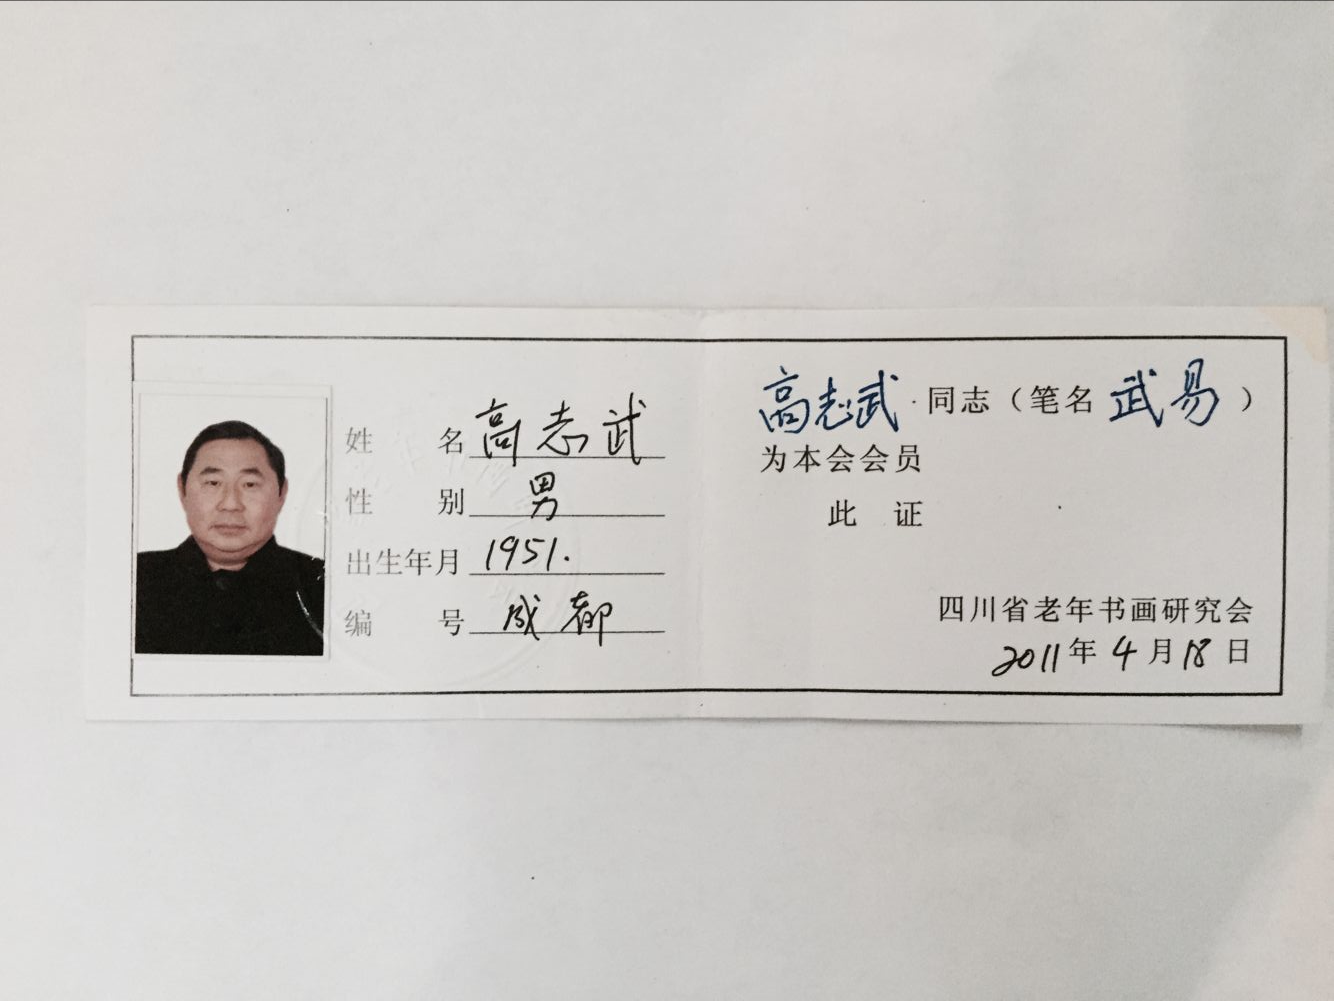 姓 名 高志武
性 别 男
出生年月 1951.
编 号 成都
高志武 同志（笔名 武易 ）
为本会会员
此 证
四川省老年书画研究会
2011年4月18日